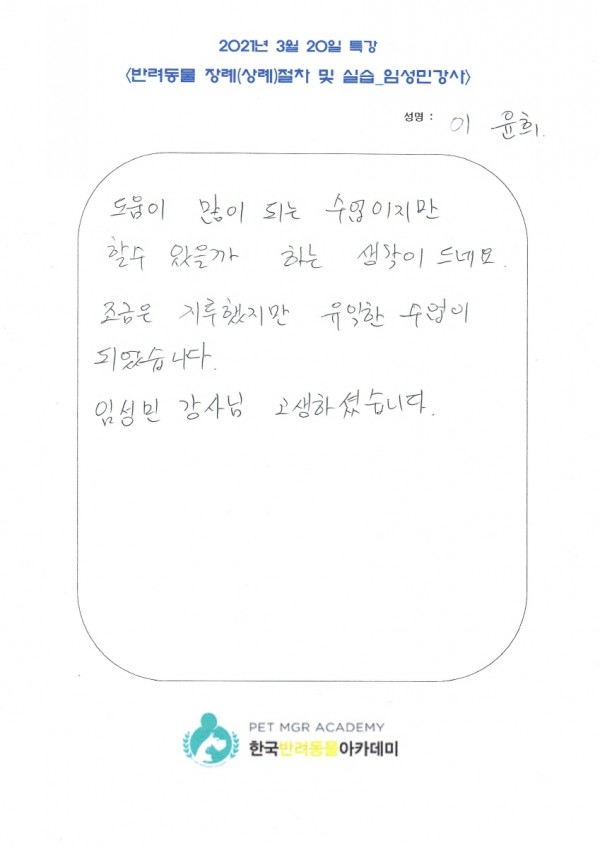 2021년 3월 20일 특강
<반려동물 장례(상례)절차 및 실습_임성민강사>
성명 : 이 윤희.
도움이 많이 되는 수업이지만
할수 있을까 하는 생각이 드네요.
조금은 지루했지만 유익한 수업이
되었습니다.
임성민 강사님 고생하셨습니다.
PET MGR ACADEMY
한국반려동물아카데미